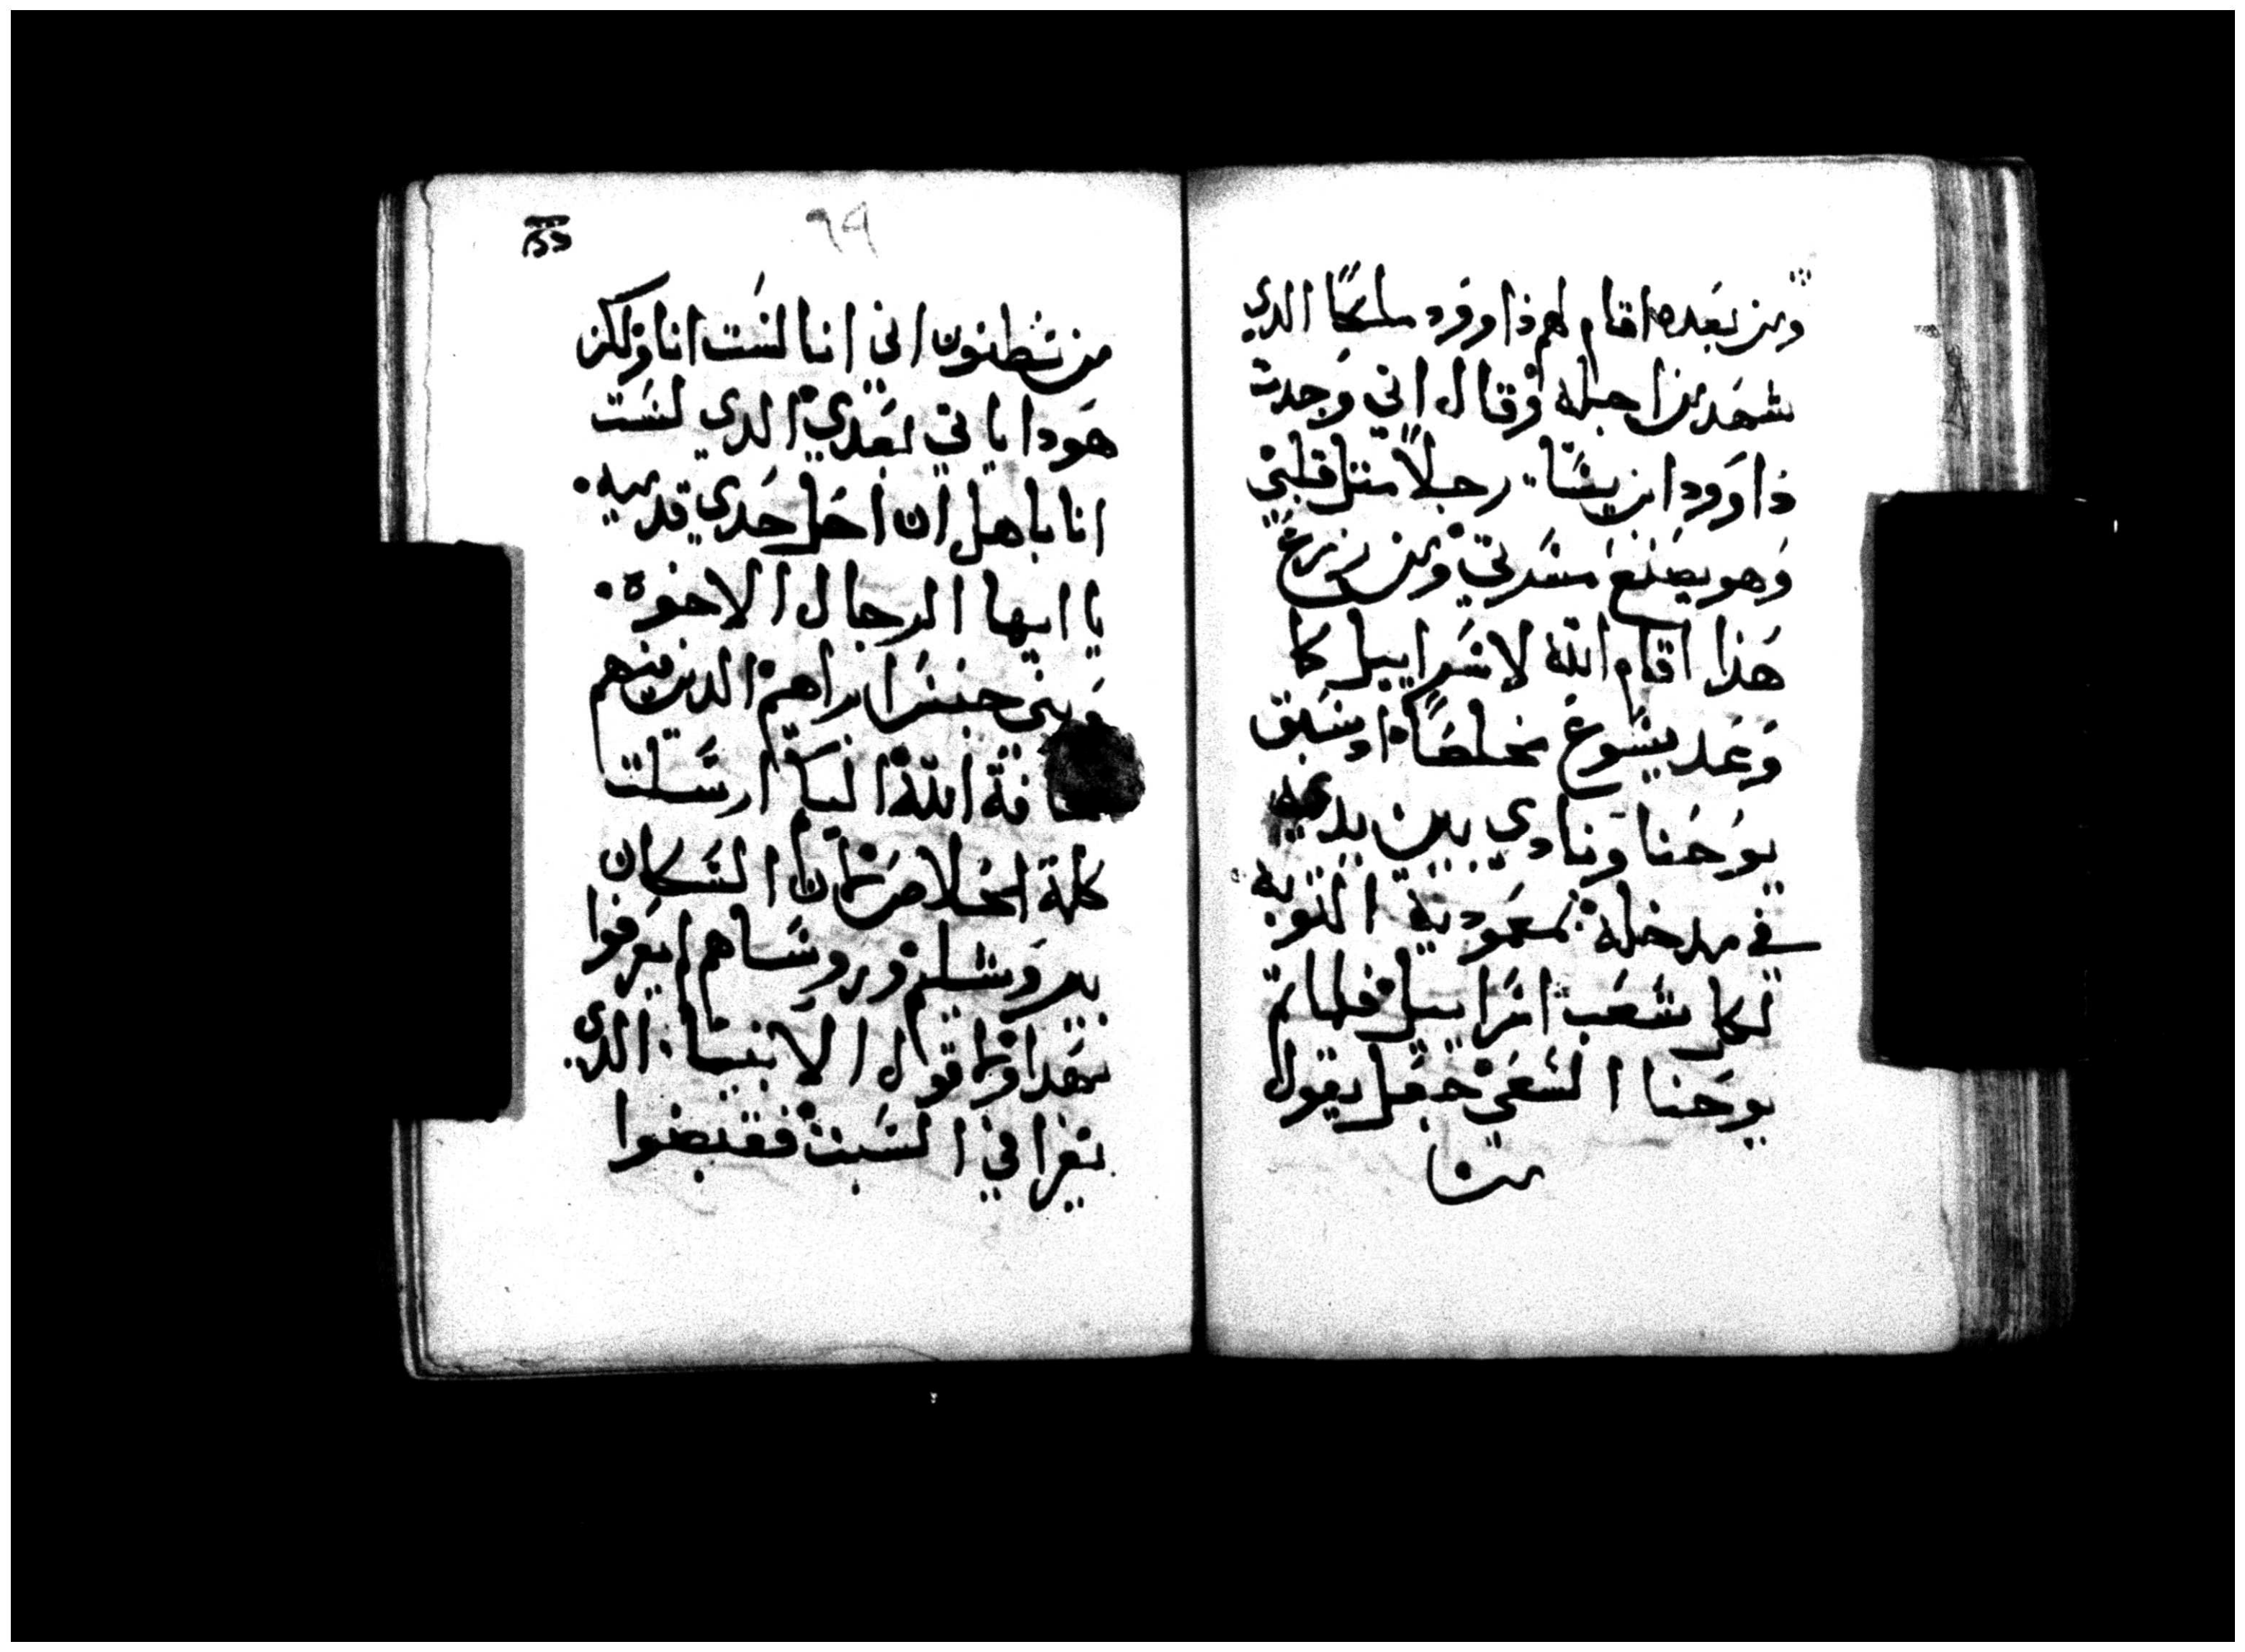 ومن بعده اقام لهم داوود ملكًا الدي
شهد من اجله وقال اني وجدت
داوود ابن يسَّا رجلاً متل قلبي
وهو يصنع مسرتي ومن زرع
هذا اقام الله لاسراييل كما
وعد يسوع مخلصًا وسبق
يوحنا ونادي بين يديه
في مدخله بمعمودية التوبه
لكل شعب اسراييل فلما تم
يوحنا السعي جعل يقول
من
٩٩
من تظنون اني انا لست انا ولكن
هودا ياتي بعدي الدي لست
انا باهل ان احل حدي قدميه
يا ايها الرجال الاخوه
وبني جنس ابراهيم الدين فيهم
مخافة الله اليكم ارسلت
كلمة الخلاص فاما السكان
بيروشليم وروساهم لم يعرفوا
بهدا ولما قول الانبيا الدي
تقرا في السبت فقبضوا